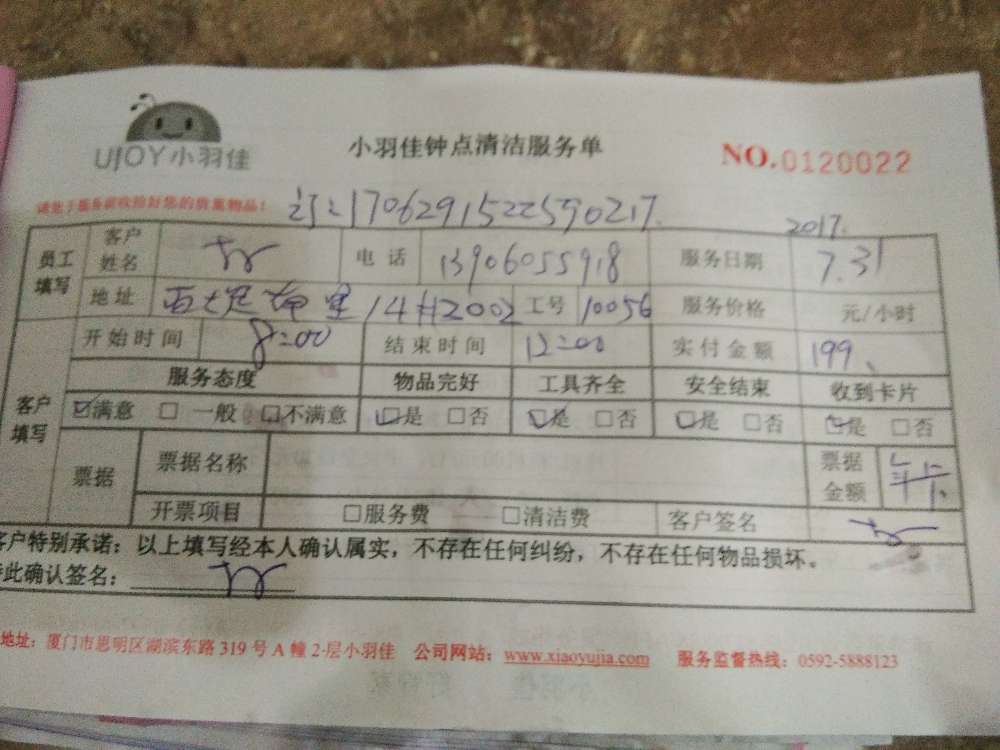 UJOY小羽佳
小羽佳钟点清洁服务单
NO.0120022
请处于服务前收拾好您的贵重物品！
订:1706291522590217
2017.
员工填写 客户姓名 电话 13906055918 服务日期 7.31
地址 14#2002 工号 10056 服务价格 元/小时
开始时间 8:00 结束时间 12:00 实付金额 199、
客户填写 服务态度 物品完好 工具齐全 安全结束 收到卡片
☑满意 □一般 □不满意 ☑是 □否 ☑是 □否 ☑是 □否 ☑是 □否
票据 票据名称 票据金额
开票项目 □服务费 □清洁费 客户签名
客户特别承诺：以上填写经本人确认属实，不存在任何纠纷，不存在任何物品损坏。
特此确认签名：
地址：厦门市思明区湖滨东路319号A幢2层小羽佳 公司网站：www.xiaoyujia.com 服务监督热线：0592-5888123